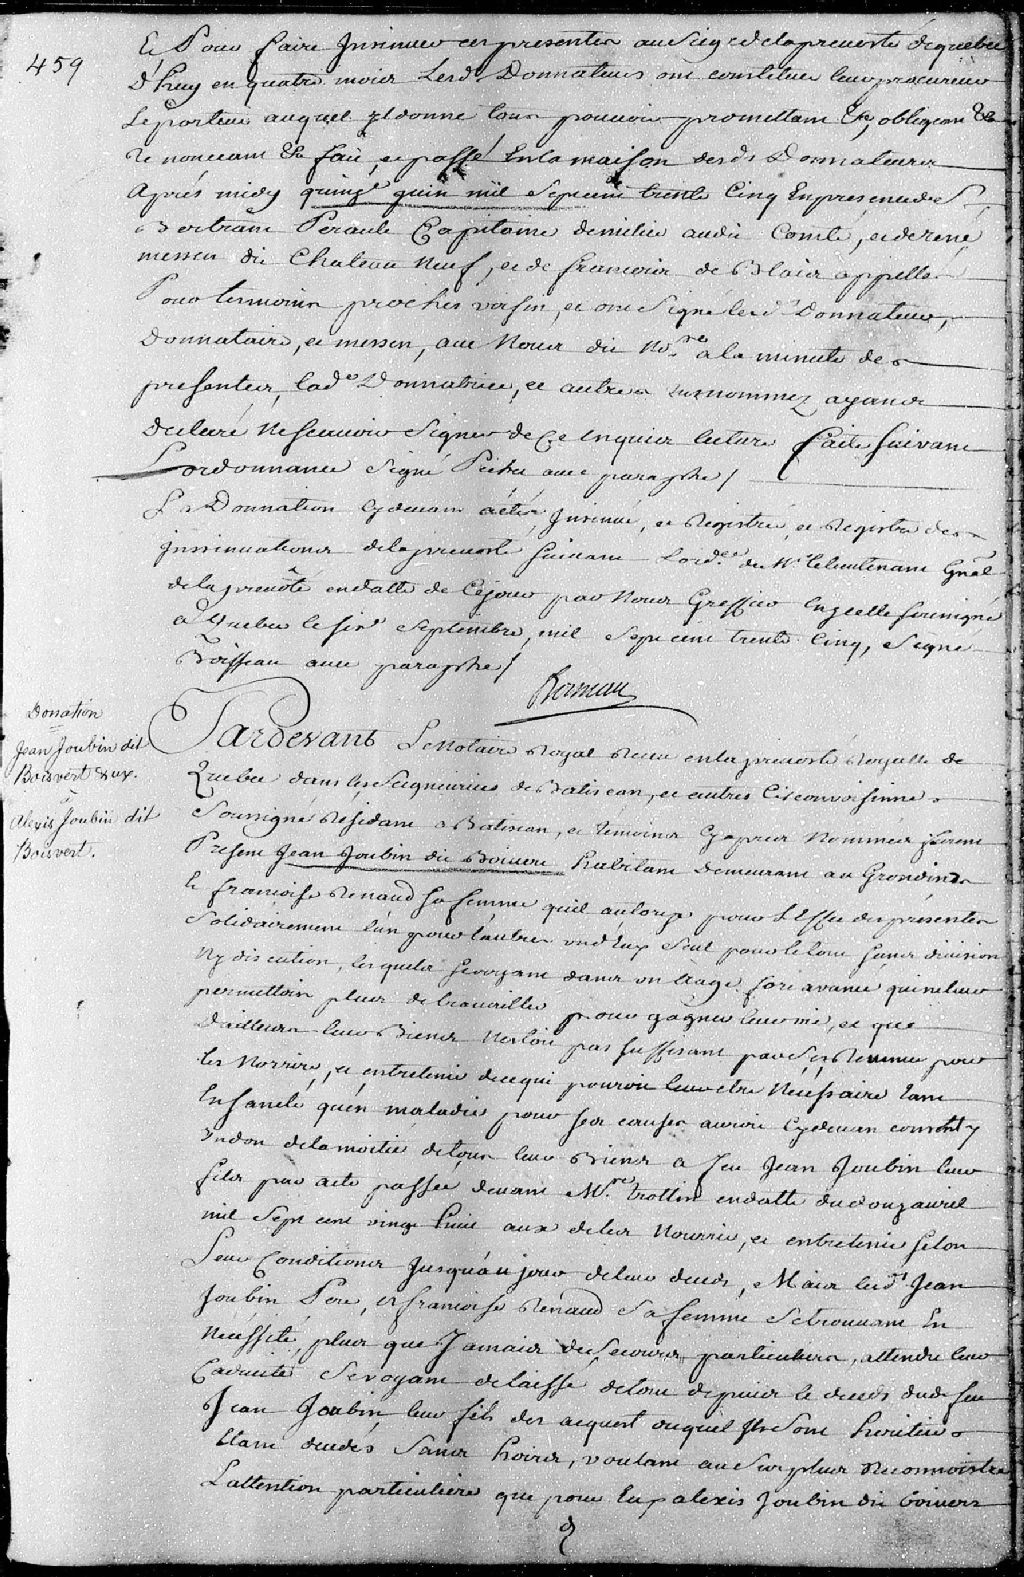 459
Et Pour faire Insinuer ces presentes au Siege de la prevosté de quebec
D'huy en quatre mois Lesd. Donnateurs ont constitué leur procureur
Le porteur auquel ils donne tout pouvoir promettant &c, obligeant &c
Renoncant &c fait, et passé En la maison desds Donnateurs
Après midy quinze juin mil sept cent trente Cinq En presence de S.
Bertrand Perault Capitaine de milice audit Comté, et de rené
messon du Chateau Neuf, et de francois de Blois appellé
Pour temoins proches voisin, et ont Signé lesd. Donnateur,
Donnataire, et messon, avec Nous dit No.re a la minute des
presentes, lad.e Donnatrice, et autres surnommez ayant
declaré Ne scavoir Signer de Ce Enquis lecture faite suivant
Lordonnance Signé Pichet avec paraphe /
La Donnation cy devant a été Insinué, et Registrée, et Registre des
Insinuations de la prevosté suivant Lord.ce de Mr le lieutenant Gñal
de la prevôté en datte de Cejour par Nous Greffier En icelle soussigné
à Quebec le six.e Septembre, mil sept cent trente Cinq, Signé
Boisseau avec paraphe /
Donation
Jean Joubin dit
Boisvert & ux.
à
Alexis Joubin dit
Boisvert.
Pardevant Le Notaire Royal Receu en la prevosté Royalle de
Quebec dans les Seigneuries de Batiscan, et autres Circonvoisinne
Soussigné Residant a Batiscan, et temoins Cy apres Nommés furent
Present Jean Joubin dit Boivere habitant demeurant au Grondines
Et francoise Renaud sa femme quil autorize pour L'Effet des présentes
Solidairement l'un pour l'autre un d'Eux Seul pour le tout sans division
Ny discution, lesquels se voyant dans un âage fort avancé qui ne leur
permettoit plus de travailler pour gagner leur vie, et que
D'ailleurs leur Biens N'etoit pas suffisant par Ses Revenus pour
les Norrire, et entretenir de ce qui pouroit leur etre Nécessaire tant
En santé qu'en maladie pour ses causes auroit Cydevant consenty
Un don de la moitié de tous leur Biens a feu Jean Joubin leur
fils par acte passée devant M.re trottin en datte du douz avril
mil Sept cent vingt huit aux de les Nourrir, et entretenir selon
Leur Conditions Jusqu'au jour de leur deceds, Mais lesd.s Jean
Joubin Pere, et francoise Renaud Sa femme Se trouvant En
Nécessité plus que Jamais de Secours particuliers, attendu leur
Caducité Se voyant delaissé de tout depuis le deceds dud. feu
Jean Joubin leur fils des acquest duquel Ils sont heritiers
Etant decedés Sans hoirs, voulant au Surplus Reconnoistre
L'attention particuliere que pour Eux alexis Joubin dit boivers